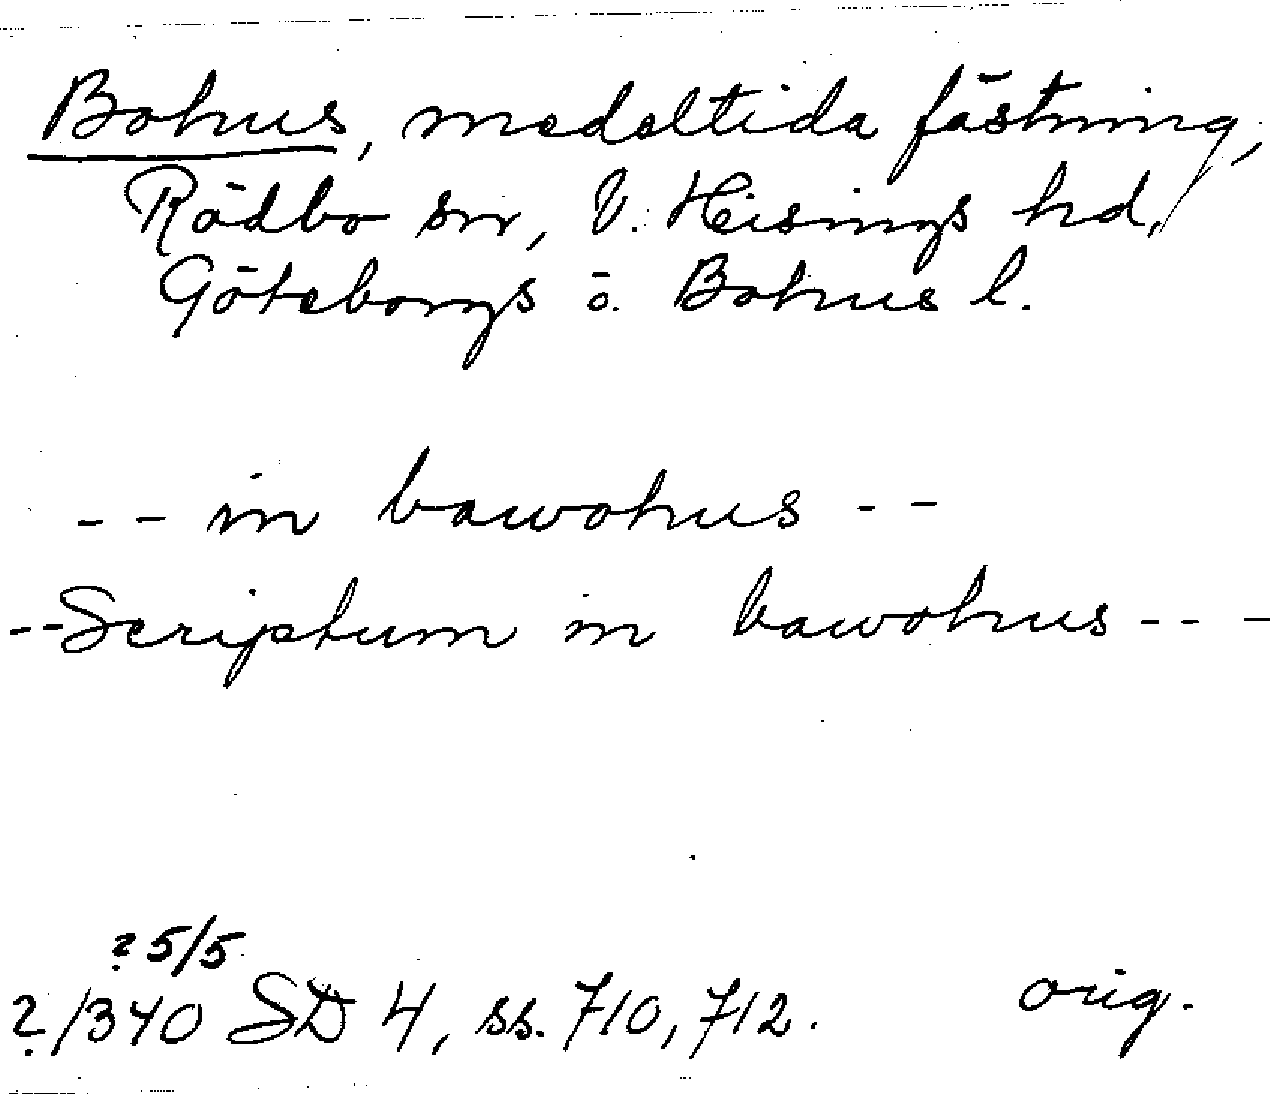 Bohus, medeltida fästning,
Rödbo sn, V. Hisings hd,
Göteborgs o. Bohus l.
-- in bawohus --
-- Scriptum in bawohus -- -
? 5/5
? 1340 SD 4, ss. 710, 712. orig.